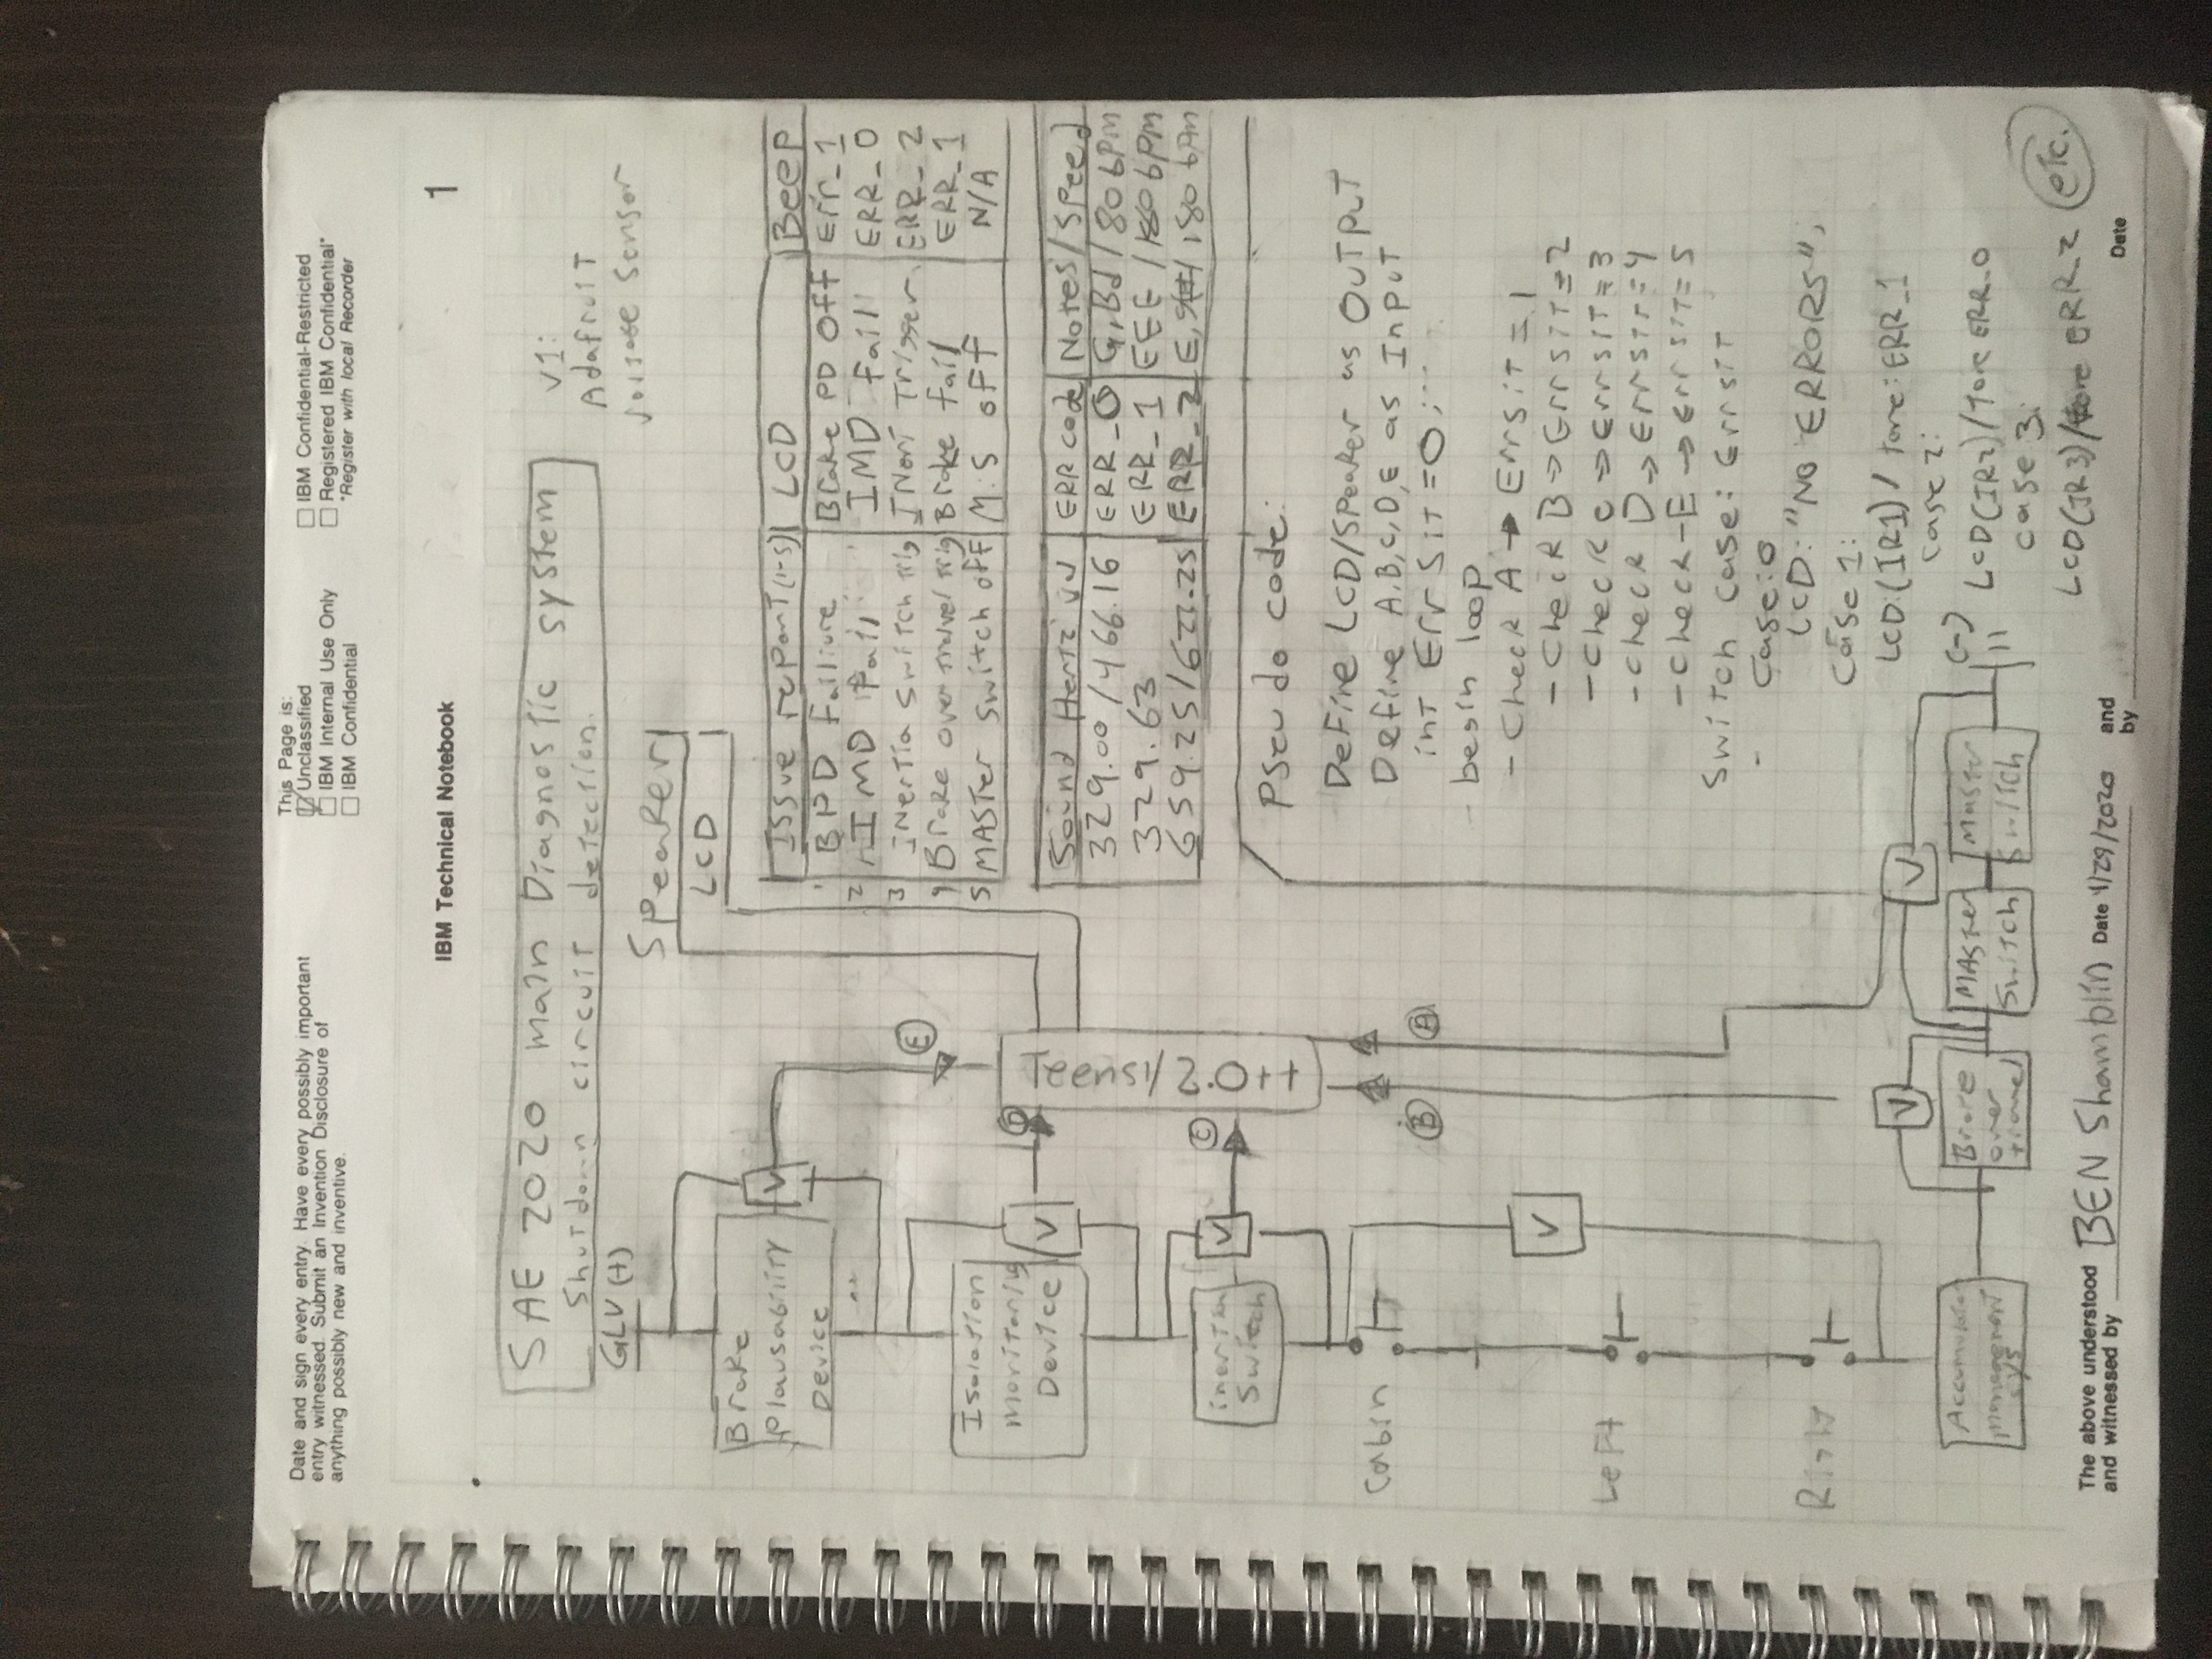 Date and sign every entry. Have every possibly important
entry witnessed. Submit an Invention Disclosure of
anything possibly new and inventive.
This Page is:
Unclassified
IBM Internal Use Only
IBM Confidential
IBM Confidential-Restricted
Registered IBM Confidential*
*Register with local Recorder
IBM Technical Notebook
1
SAE 2020 main Diagnostic system
Shutdown circuit detection.
V1:
Adafruit
Sensor
GLV (+)
Speaker
LCD
Brake
Plausability
Device
V
E
Isolation
Monitoring
Device
V
D
Teensy 2.0++
inertia
Switch
V
C
Cabin
B
A
V
Left
Right
V
V
Accumulator
management
sys
Brake
over
travel
MAster
Switch
Master
Switch
(-)
Issue report (1-5) LCD Beep
1 BPD Failiure Brake PD Off Err_1
2 IMD Fail IMD Fail ERR_0
3 INertia Switch trig INert Trigger. ERR_2
4 Brake over travel trig Brake fail ERR_1
5 MASTer switch off M.S off N/A
Sound Hertz ERR code Notes/Speed
329.00/466.16 ERR_0 G, /80 bpm
329.63 ERR_1 EEE / bpm
659.25/622.25 ERR_2 E, 180 bpm
Pseudo code:
Define LCD/Speaker as OUTPUT
Define A,B,C,D,E as InPUT
int ErrSit=0;
- begin loop
- Check A → Errsit = 1
- Check B → Errsit=2
- Check C → Errsit=3
- Check D → Errsit=4
- Check-E → Errsit=5
Switch case: Errsit
- Case:0
LCD: "NO ERRORS";
Case 1:
LCD:(IR1) / tone: ERR_1
case 2:
LCD(IR2)/Tone ERR_0
case 3:
LCD(IR3)/tone ERR_2
etc.
The above understood
and witnessed by BEN Shamblin Date 4/29/2020 and
by
Date